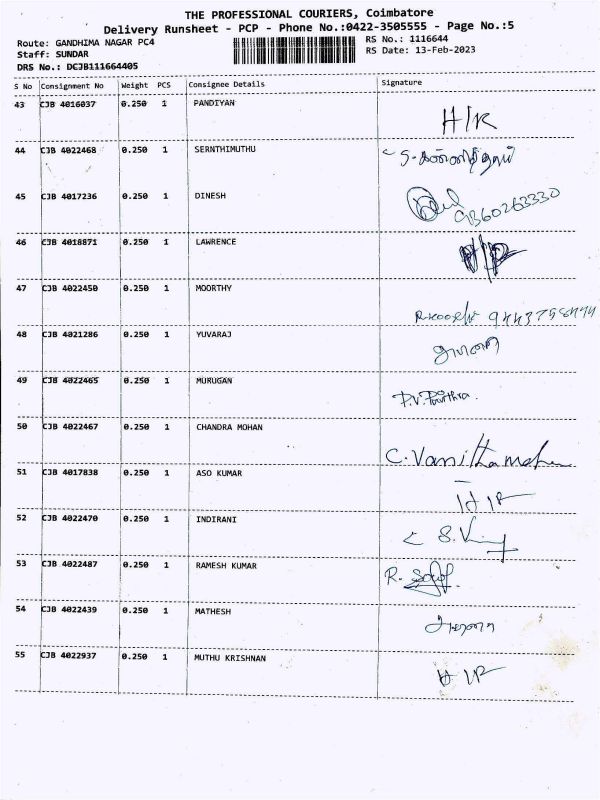 THE PROFESSIONAL COURIERS, Coimbatore
Delivery Runsheet - PCP - Phone No.:0422-3505555 - Page No.:5
Route: GANDHIMA NAGAR PC4
RS No.: 1116644
Staff: SUNDAR
RS Date: 13-Feb-2023
DRS No.: DCJB111664405
S No Consignment No Weight PCS Consignee Details Signature
43 CJB 4016037 0.250 1 PANDIYAN H/R
44 CJB 4022468 0.250 1 SERNTHIMUTHU
45 CJB 4017236 0.250 1 DINESH 9360263330
46 CJB 4018871 0.250 1 LAWRENCE H/R
47 CJB 4022450 0.250 1 MOORTHY
48 CJB 4021286 0.250 1 YUVARAJ
49 CJB 4022465 0.250 1 MURUGAN P.V.
50 CJB 4022467 0.250 1 CHANDRA MOHAN C. Vanitha
51 CJB 4017838 0.250 1 ASO KUMAR H/R
52 CJB 4022470 0.250 1 INDIRANI
53 CJB 4022487 0.250 1 RAMESH KUMAR R.
54 CJB 4022439 0.250 1 MATHESH
55 CJB 4022937 0.250 1 MUTHU KRISHNAN H/R